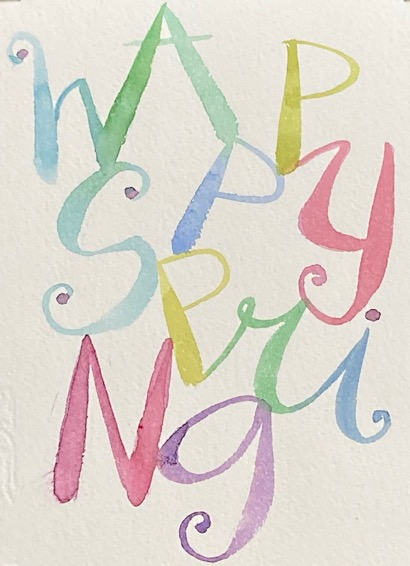 hAPPy
SPriNg